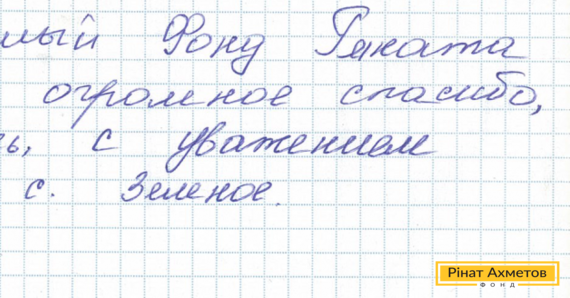 лый Фонд Рината
огромное спасибо,
ь, с уважением
с. Зеленое.
Рінат Ахметов
ФОНД